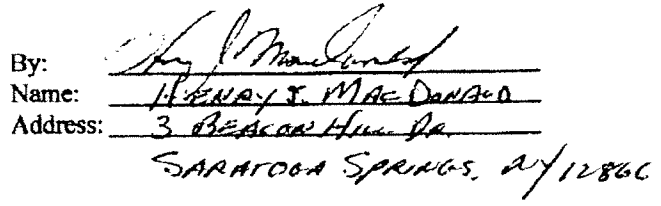 By: Henry J. MacDonald
Name: HENRY J. MACDONALD
Address: 3 BEACON HILL DR.
SARATOGA SPRINGS, NY 12866